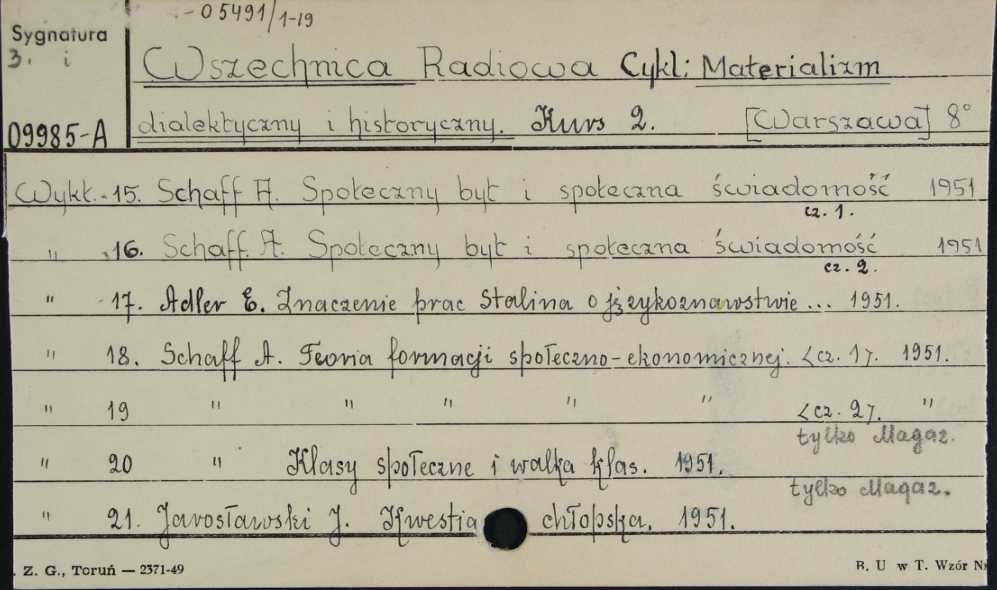 - 05491/1-19
Sygnatura
3. i
Wszechnica Radiowa Cykl: Materializm
09985-A
dialektyczny i historyczny. Kurs 2. [Warszawa] 8°
Wykł. - 15. Schaff A. Społeczny byt i społeczna świadomość 1951
cz. 1.
" 16. Schaff. A. Społeczny byt i społeczna świadomość 1951
cz. 2.
" 17. Adler E. Znaczenie prac Stalina o językoznawstwie ... 1951.
" 18. Schaff A. Teoria formacji społeczno-ekonomicznej. <cz. 1>. 1951.
" 19 " " " " " <cz. 2>. "
tylko Magaz.
" 20 " Klasy społeczne i walka klas. 1951.
tylko Magaz.
" 21. Jarosławski J. Kwestia chłopska. 1951.
. Z. G., Toruń — 2371-49 B. U w T. Wzór Nr